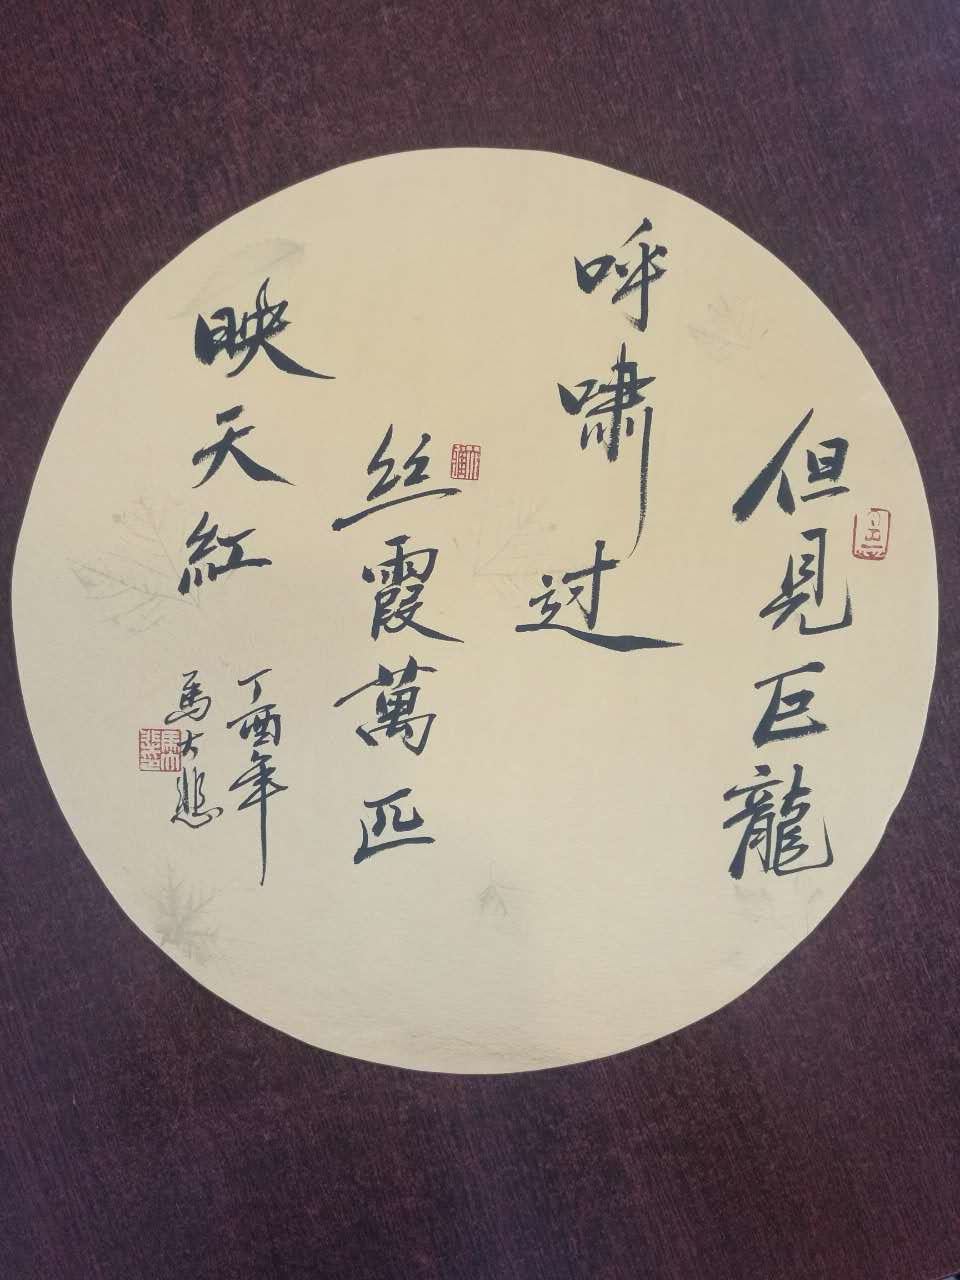 但見巨龍
呼嘯过
丝霞萬匹
映天紅
丁酉年
馬大悲